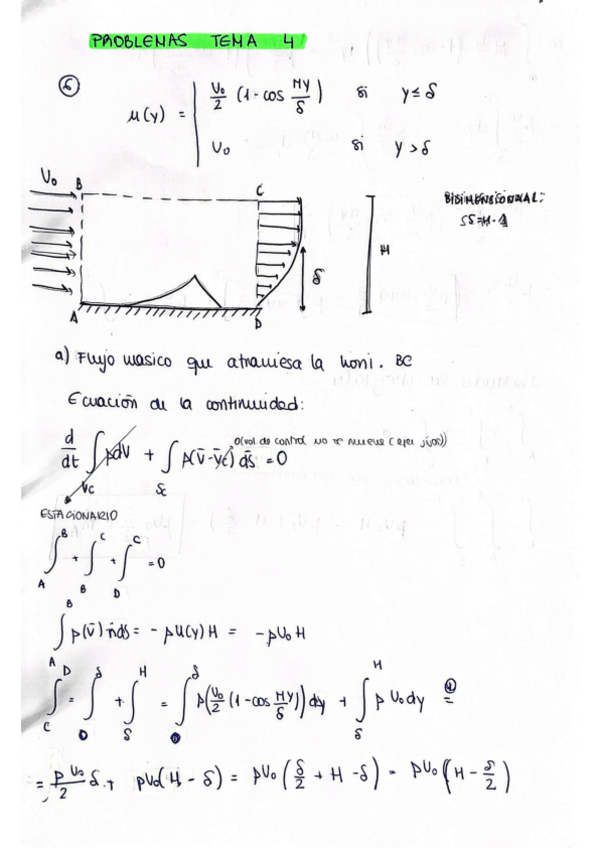 PROBLEMAS TEMA 4
6
u(y) =
U₀/2 (1-cos πy/δ) si y≤δ
U₀ si y>δ
U₀ B C
BIDIMENSIONAL:
H
δ
A D
a) Flujo masico que atraviesa la honi. BC
Ecuación de la continuidad:
d/dt ∫ρdV + ∫ρ(v̄-v̄c) ds̄ = 0
0(vol. de control no se mueve
Vc Sc
ESTACIONARIO
∫_A^B + ∫_B^C + ∫_D^C = 0
∫_A^B ρ(v̄)·n̄ds = -ρU(y)H = -ρU₀H
∫_C^D = ∫_0^δ + ∫_δ^H = ∫_0^δ ρ(U₀/2 (1-cos πy/δ)) dy + ∫_δ^H ρU₀dy =
= ρU₀/2 δ + ρU₀(H-δ) = ρU₀(δ/2 + H-δ) = ρU₀(H-δ/2)